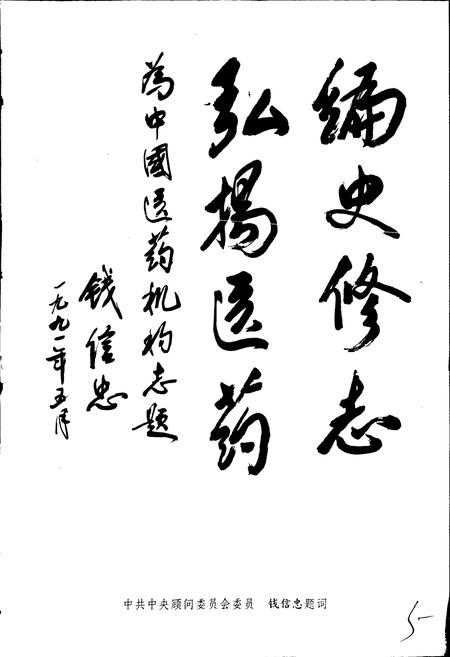 编史修志
弘揚医药
為中國医药机构志题
钱信忠
一九九一年五月
中共中央顾问委员会委员 钱信忠题词